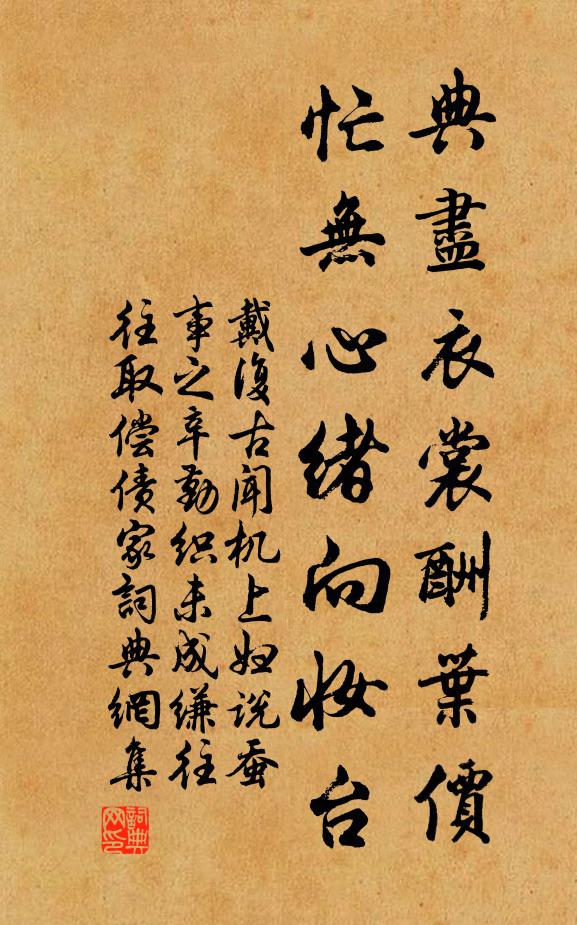 典盡衣裳酬葉價
忙無心緒向妆台
戴復古聞机上妇说蚕
事之辛勤织未成缣往
往取偿债家詞典網集
詞典
网印